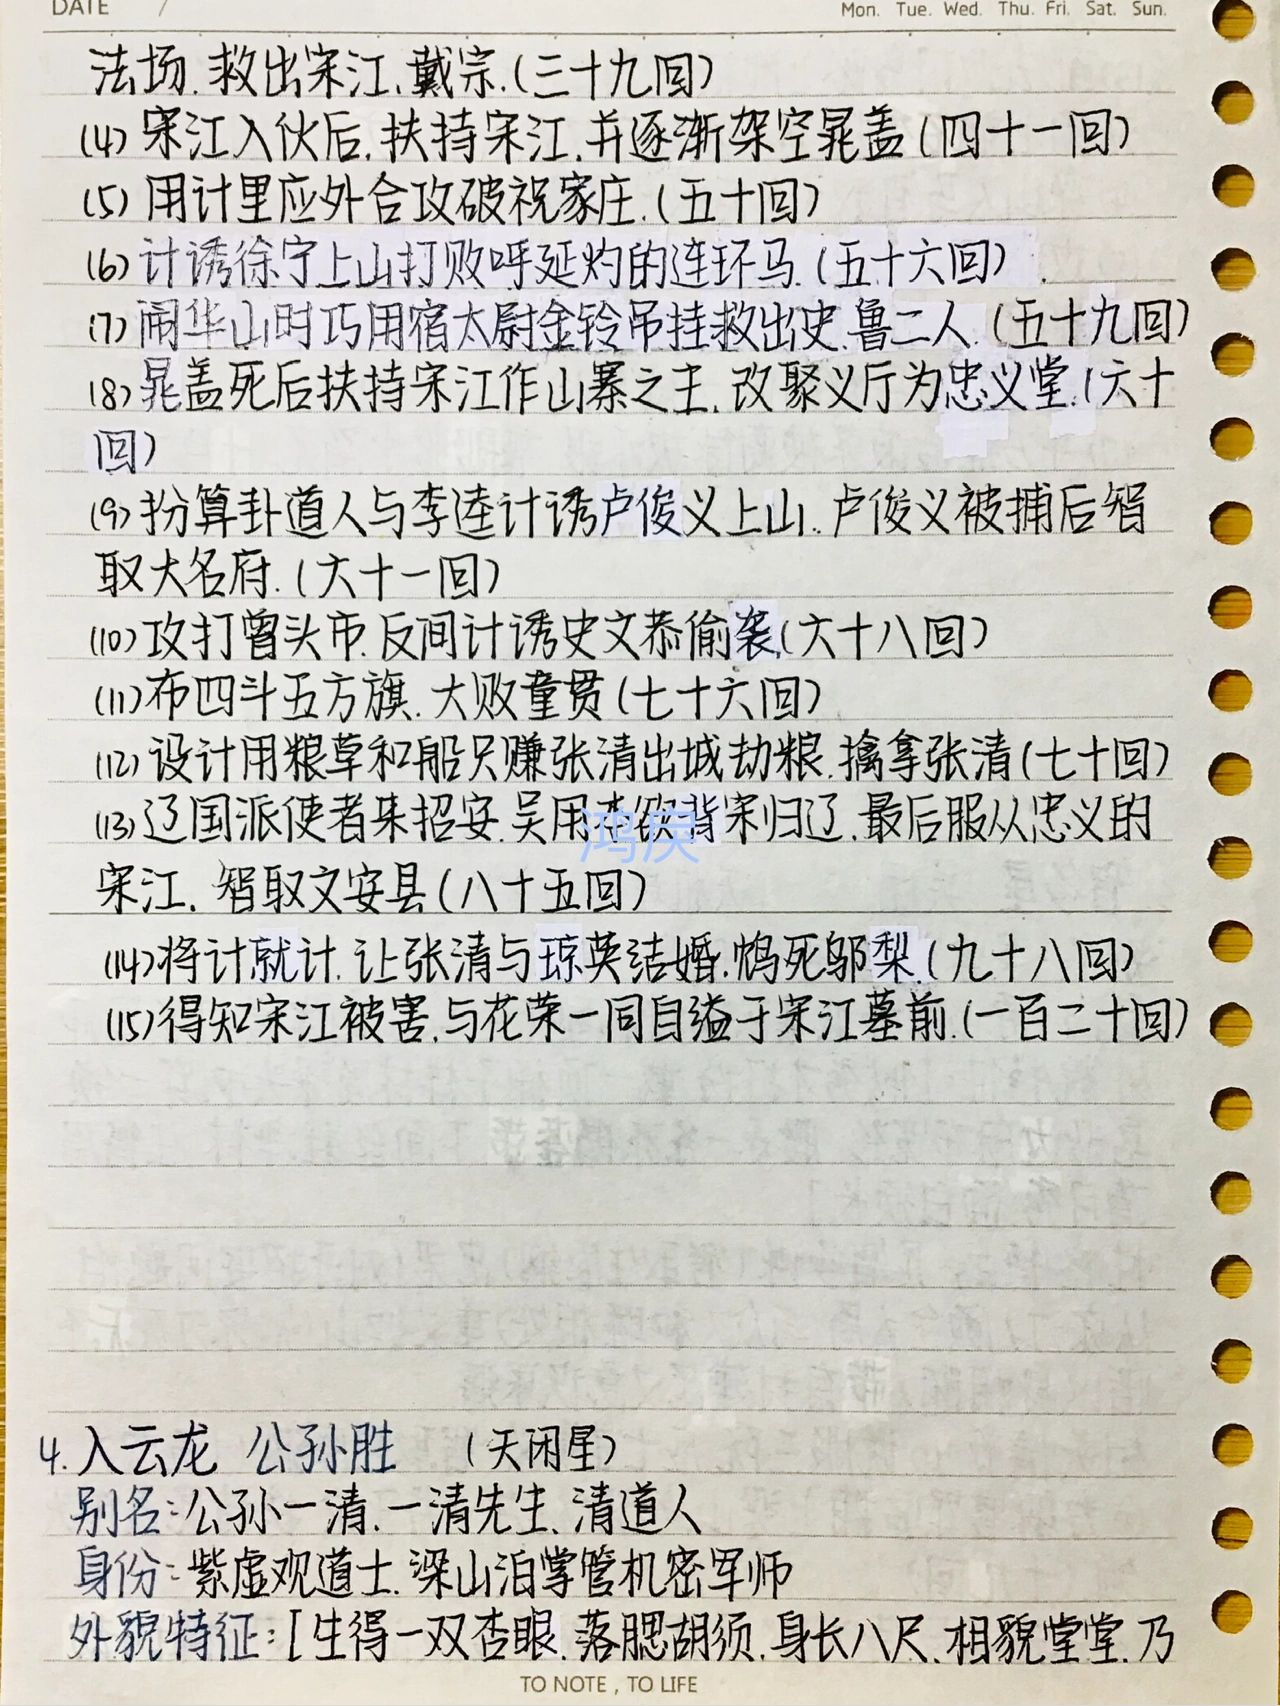 DATE /
Mon. Tue. Wed. Thu. Fri. Sat. Sun.
法场.救出宋江、戴宗.(三十九回)
(4)宋江入伙后,扶持宋江,并逐渐架空晁盖(四十一回)
(5)用计里应外合攻破祝家庄.(五十回)
(6)计诱徐宁上山打败呼延灼的连环马.(五十六回)
(7)闹华山时巧用宿太尉金铃吊挂救出史.鲁二人.(五十九回)
(8)晁盖死后扶持宋江作山寨之主,改聚义厅为忠义堂.(六十
回)
(9)扮算卦道人与李逵计诱卢俊义上山.卢俊义被捕后智
取大名府.(六十一回)
(10)攻打曾头市.反间计诱史文恭偷袭.(六十八回)
(11)布四斗五方旗.大败童贯(七十六回)
(12)设计用粮草和船只赚张清出城劫粮.擒拿张清(七十回)
(13)辽国派使者来招安.吴用本欲背宋归辽,最后服从忠义的
宋江.智取文安县(八十五回)
鸿戾
(14)将计就计.让张清与琼英结婚.鸩死邬梨.(九十八回)
(15)得知宋江被害,与花荣一同自缢于宋江墓前.(一百二十回)
4.入云龙 公孙胜 (天闲星)
别名:公孙一清.一清先生、清道人
身份:紫虚观道士.梁山泊掌管机密军师
外貌特征:[生得一双杏眼.落腮胡须.身长八尺、相貌堂堂.乃
TO NOTE , TO LIFE